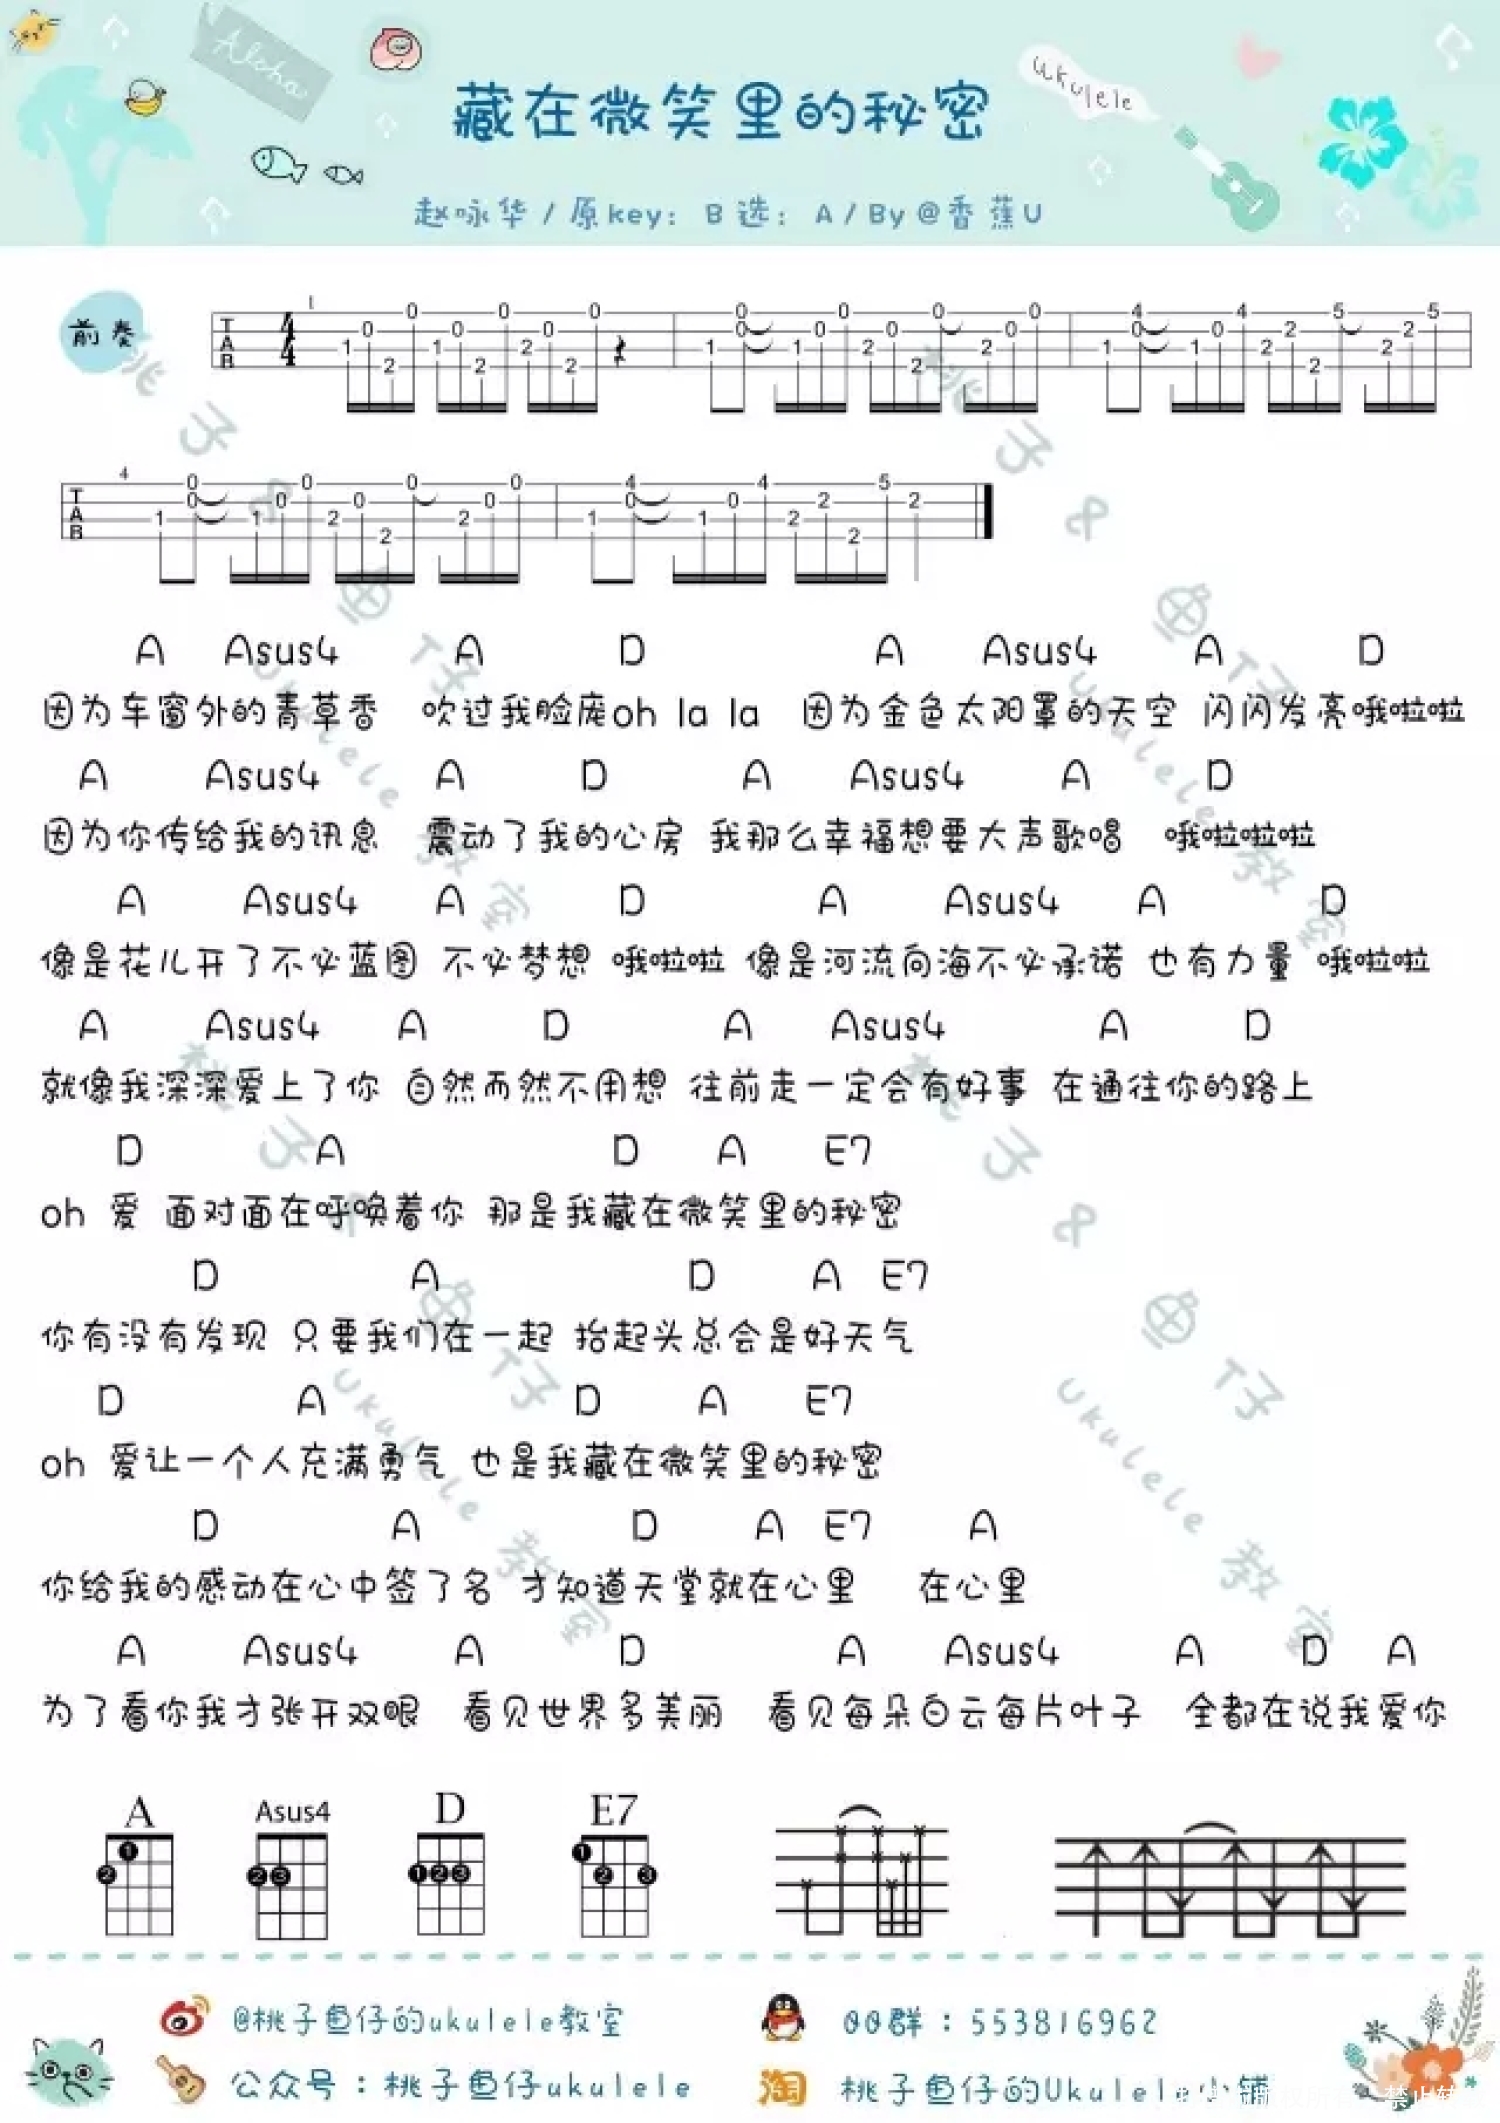 Aloha
ukulele
藏在微笑里的秘密
赵咏华/原key: B 选: A/By@香蕉U
前奏
1
T A B 4 4 1 0 2 0 1 0 2 0 2 0 2 0 1 0 0 1 0 0 2 0 2 0 2 0 0 1 0 4 1 0 4 2 2 2 5 2 2 5
4
T A B 1 0 0 1 0 0 2 0 2 0 2 0 0 1 0 4 1 0 4 2 2 2 5 2
A Asus4 A D A Asus4 A D
因为车窗外的青草香 吹过我脸庞oh la la 因为金色太阳罩的天空 闪闪发亮哦啦啦
A Asus4 A D A Asus4 A D
因为你传给我的讯息 震动了我的心房 我那么幸福想要大声歌唱 哦啦啦啦
A Asus4 A D A Asus4 A D
像是花儿开了不必蓝图 不必梦想 哦啦啦 像是河流向海不必承诺 也有力量 哦啦啦
A Asus4 A D A Asus4 A D
就像我深深爱上了你 自然而然不用想 往前走一定会有好事 在通往你的路上
D A D A E7
oh 爱 面对面在呼唤着你 那是我藏在微笑里的秘密
D A D A E7
你有没有发现 只要我们在一起 抬起头总会是好天气
D A D A E7
oh 爱让一个人充满勇气 也是我藏在微笑里的秘密
D A D A E7 A
你给我的感动在心中签了名 才知道天堂就在心里 在心里
A Asus4 A D A Asus4 A D A
为了看你我才张开双眼 看见世界多美丽 看见每朵白云每片叶子 全都在说我爱你
A Asus4 D E7
1 2 2 3 1 2 3 1 2 3
@桃子鱼仔的ukulele教室
QQ群：553816962
公众号：桃子鱼仔ukulele
淘 桃子鱼仔的Ukulele小铺